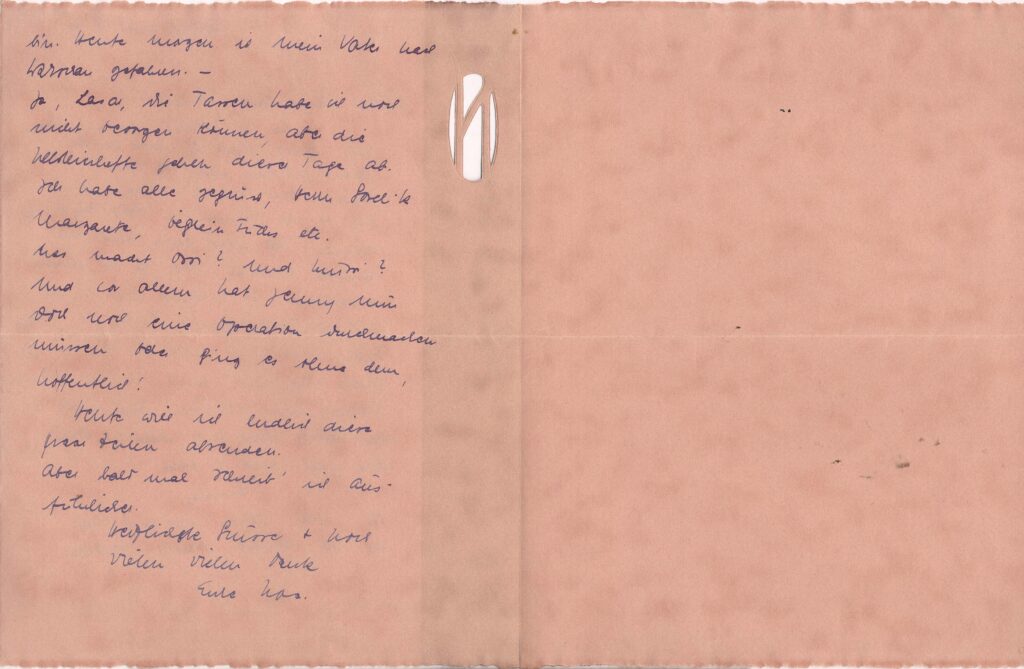 bin. Heute morgen ist mein Vater nach
gefahren. –
Ja, Lasa, die Tassen habe ich noch
nicht besorgen können, aber die
gehen diese Tage ab.
Ich habe alle gegrüsst, Herrn
Margarete, Fuchs etc.
Was macht Ossi? und Mussi?
Und vor allem hat Jenny nun
doch noch eine Operation durchmachen
müssen oder ging es ohne dem,
hoffentlich!
Heute will ich endlich diese
paar Zeilen absenden.
Aber bald mal schreib' ich aus-
führlicher.
Herzlichste Grüsse + noch
vielen vielen Dank
Eure